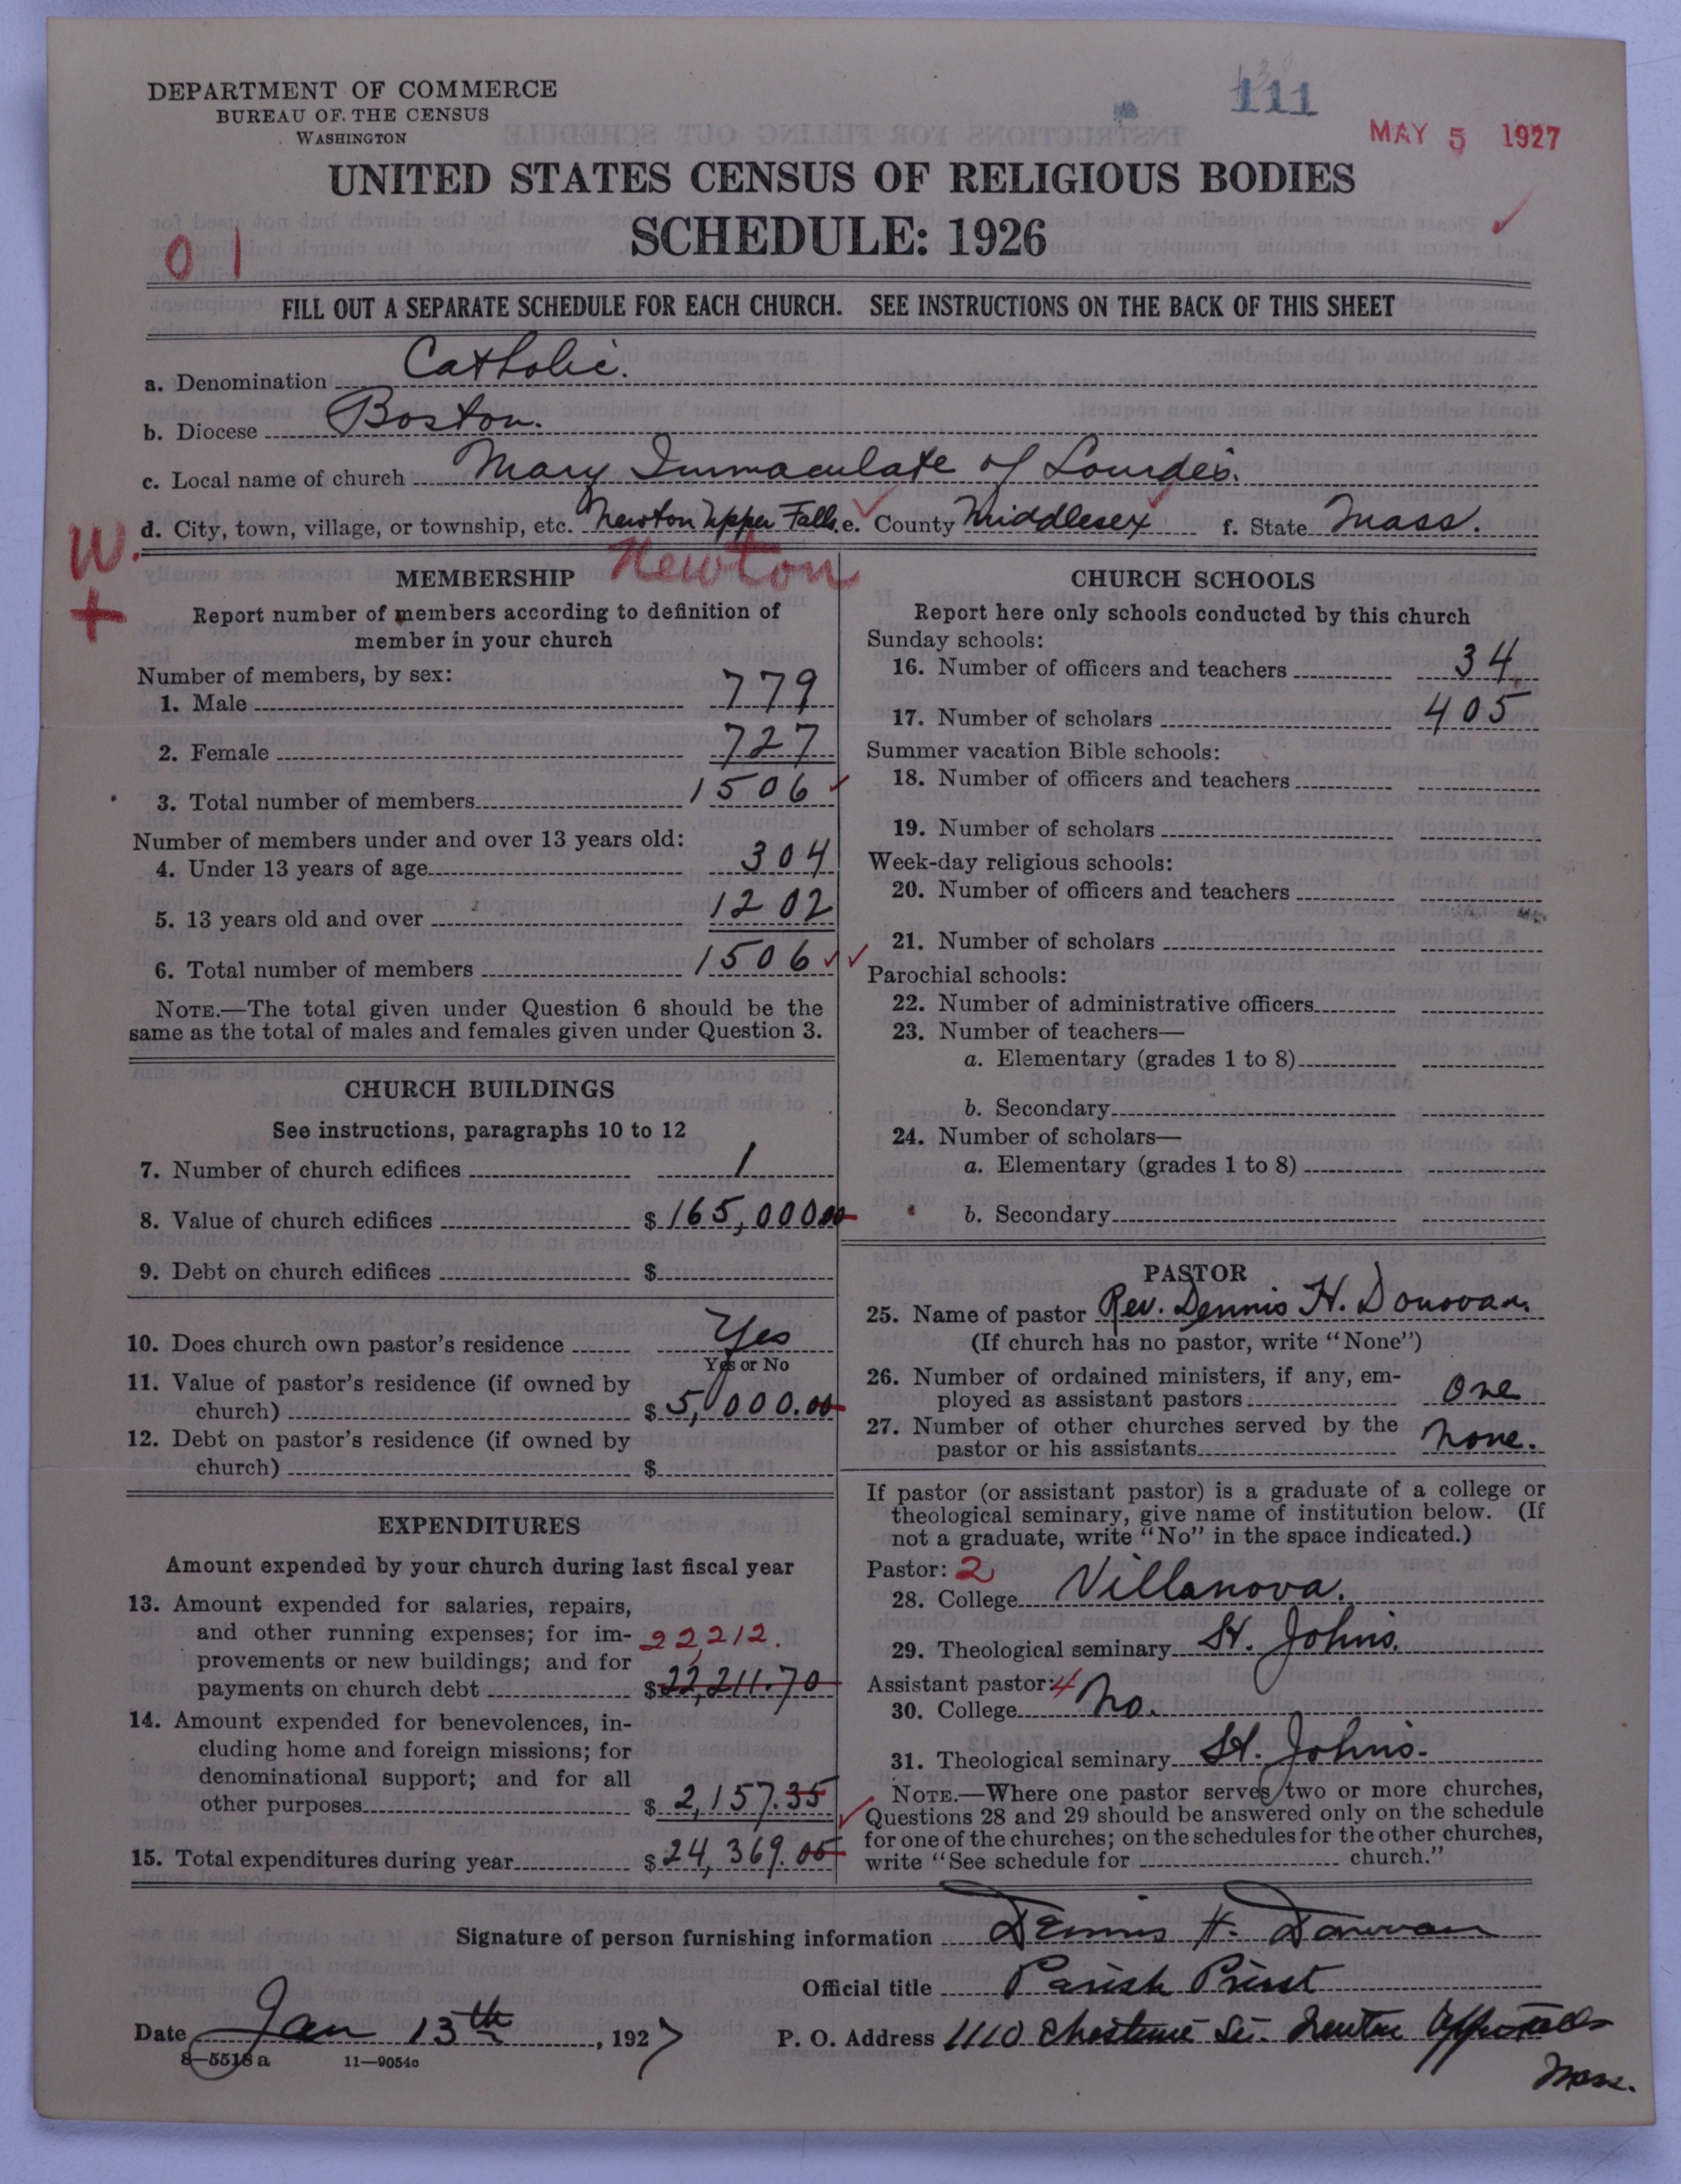 DEPARTMENT OF COMMERCE
BUREAU OF THE CENSUS
WASHINGTON
111
MAY 5 1927
UNITED STATES CENSUS OF RELIGIOUS BODIES
SCHEDULE: 1926
0 1
FILL OUT A SEPARATE SCHEDULE FOR EACH CHURCH. SEE INSTRUCTIONS ON THE BACK OF THIS SHEET
a. Denomination Catholic.
b. Diocese Boston.
c. Local name of church Mary Immaculate of Lourdes.
d. City, town, village, or township, etc. Newton Upper Falls e. County Middlesex f. State Mass.
W.
+
Newton
MEMBERSHIP
Report number of members according to definition of
member in your church
Number of members, by sex:
1. Male 779
2. Female 727
3. Total number of members 1506
Number of members under and over 13 years old:
4. Under 13 years of age 304
5. 13 years old and over 1202
6. Total number of members 1506
NOTE.—The total given under Question 6 should be the
same as the total of males and females given under Question 3.
CHURCH BUILDINGS
See instructions, paragraphs 10 to 12
7. Number of church edifices 1
8. Value of church edifices $165,000.00
9. Debt on church edifices $
10. Does church own pastor's residence Yes
Yes or No
11. Value of pastor's residence (if owned by
church) $5,000.00
12. Debt on pastor's residence (if owned by
church) $
EXPENDITURES
Amount expended by your church during last fiscal year
13. Amount expended for salaries, repairs,
and other running expenses; for im- 22,212.
provements or new buildings; and for
payments on church debt $22,211.70
14. Amount expended for benevolences, in-
cluding home and foreign missions; for
denominational support; and for all
other purposes $2,157.35
15. Total expenditures during year $24,369.05
CHURCH SCHOOLS
Report here only schools conducted by this church
Sunday schools:
16. Number of officers and teachers 34
17. Number of scholars 405
Summer vacation Bible schools:
18. Number of officers and teachers
19. Number of scholars
Week-day religious schools:
20. Number of officers and teachers
21. Number of scholars
Parochial schools:
22. Number of administrative officers
23. Number of teachers—
a. Elementary (grades 1 to 8)
b. Secondary
24. Number of scholars—
a. Elementary (grades 1 to 8)
b. Secondary
PASTOR
25. Name of pastor Rev. Dennis H. Donovan.
(If church has no pastor, write "None")
26. Number of ordained ministers, if any, em-
ployed as assistant pastors One
27. Number of other churches served by the
pastor or his assistants None.
If pastor (or assistant pastor) is a graduate of a college or
theological seminary, give name of institution below. (If
not a graduate, write "No" in the space indicated.)
Pastor: 2
28. College Villanova.
29. Theological seminary St. Johns.
Assistant pastor: 4
30. College No.
31. Theological seminary St. Johns.
NOTE.—Where one pastor serves two or more churches,
Questions 28 and 29 should be answered only on the schedule
for one of the churches; on the schedules for the other churches,
write "See schedule for church."
Signature of person furnishing information Dennis H. Donovan
Official title Parish Priest
Date Jan 13th, 1927 P. O. Address 1110 Chestnut St. Newton Upper Falls
Mass.
8—5518 a 11—9054c